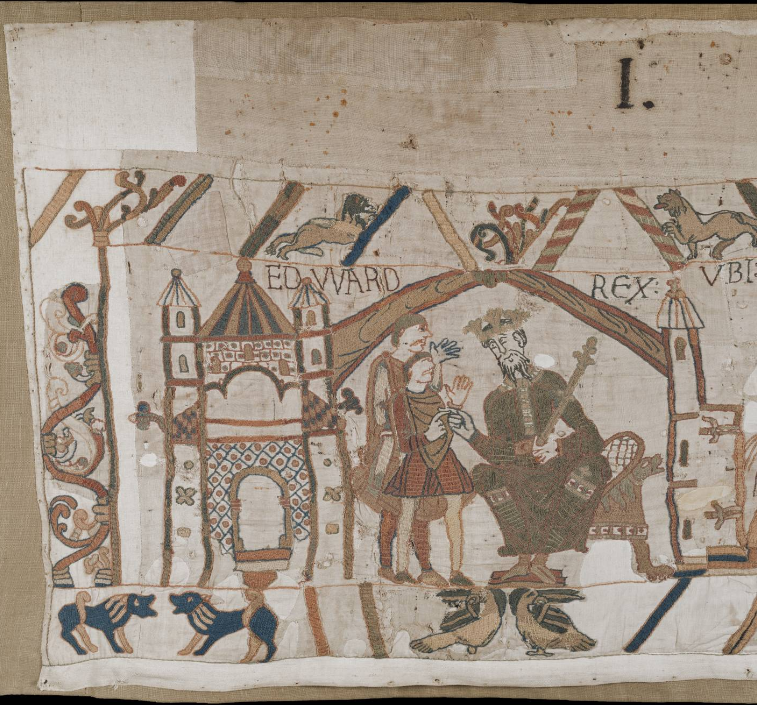 I.
EDVVARD REX: VBI: